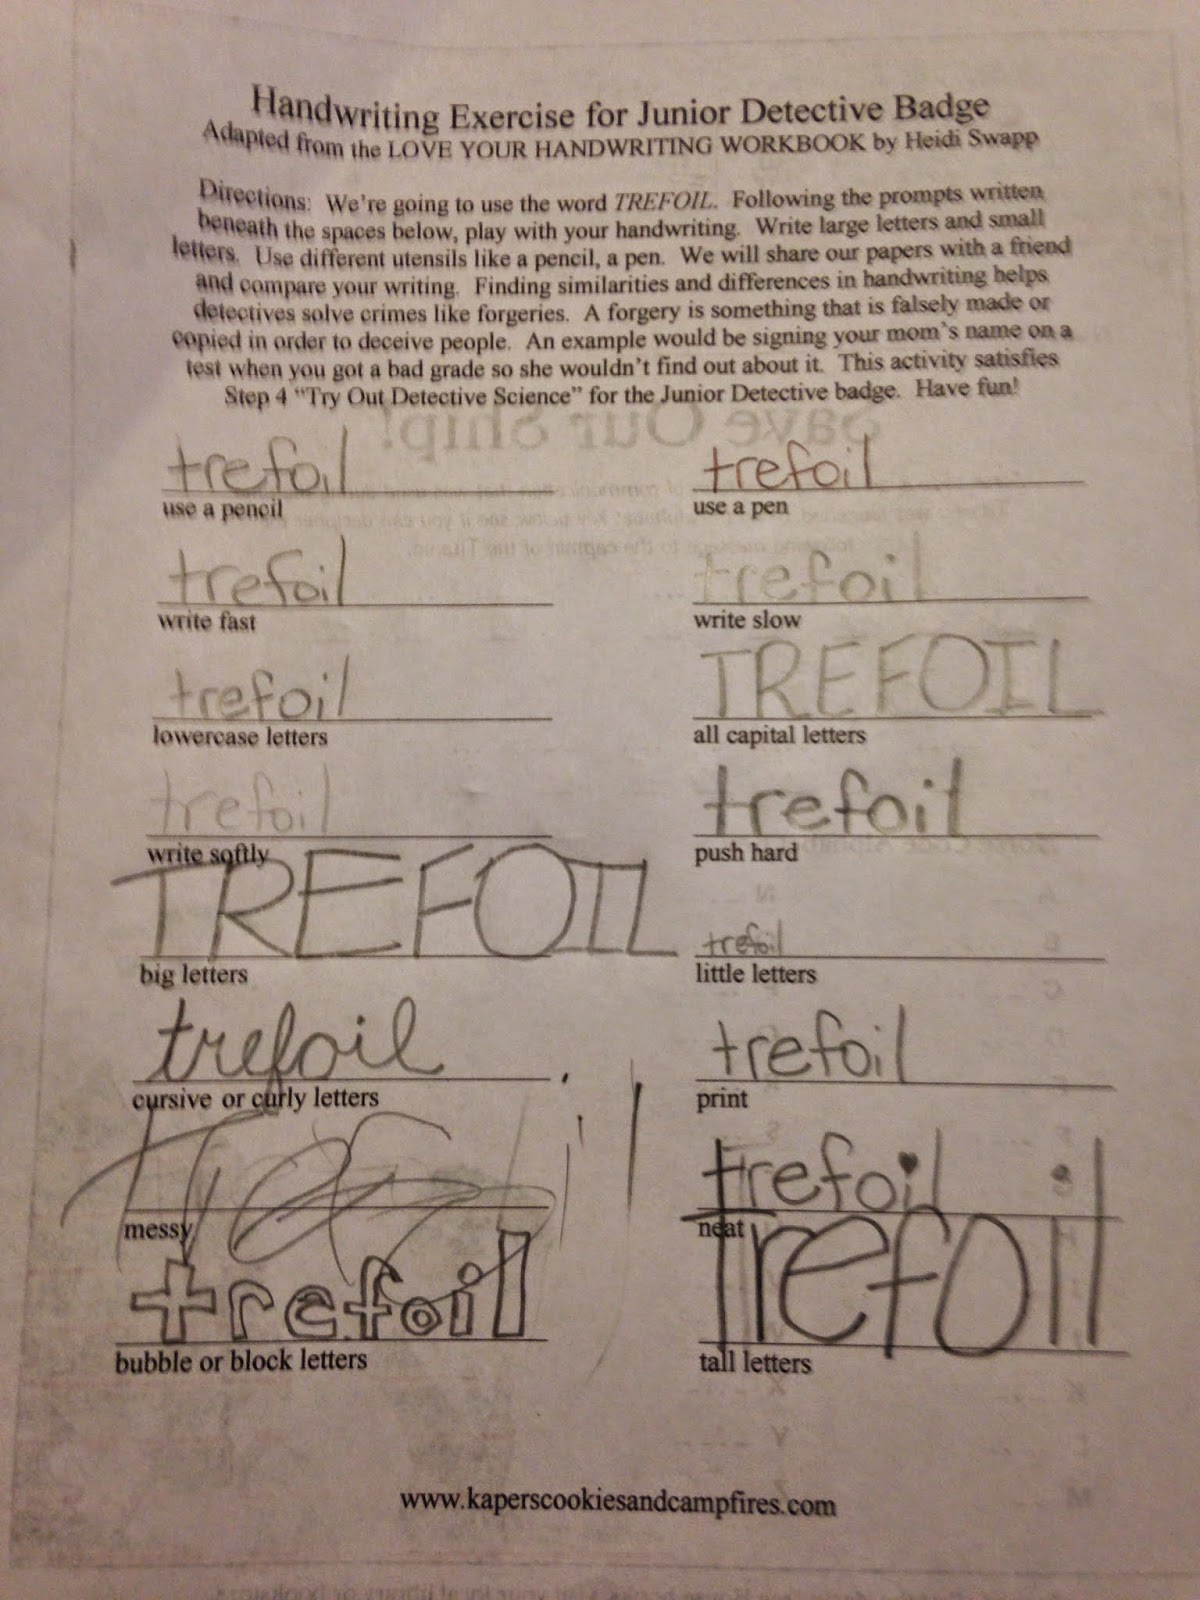 Handwriting Exercise for Junior Detective Badge
Adapted from the LOVE YOUR HANDWRITING WORKBOOK by Heidi Swapp
Directions: We're going to use the word TREFOIL. Following the prompts written
beneath the spaces below, play with your handwriting. Write large letters and small
letters. Use different utensils like a pencil, a pen. We will share our papers with a friend
and compare your writing. Finding similarities and differences in handwriting helps
detectives solve crimes like forgeries. A forgery is something that is falsely made or
copied in order to deceive people. An example would be signing your mom's name on a
test when you got a bad grade so she wouldn't find out about it. This activity satisfies
Step 4 "Try Out Detective Science" for the Junior Detective badge. Have fun!
Save Our Ship!
trefoil trefoil
use a pencil use a pen
trefoil trefoil
write fast write slow
trefoil TREFOIL
lowercase letters all capital letters
trefoil trefoil
write softly push hard
TREFOIL trefoil
big letters little letters
trefoil trefoil
cursive or curly letters print
trefoil
messy neat
trefoil Trefoil
bubble or block letters tall letters
www.kaperscookiesandcampfires.com